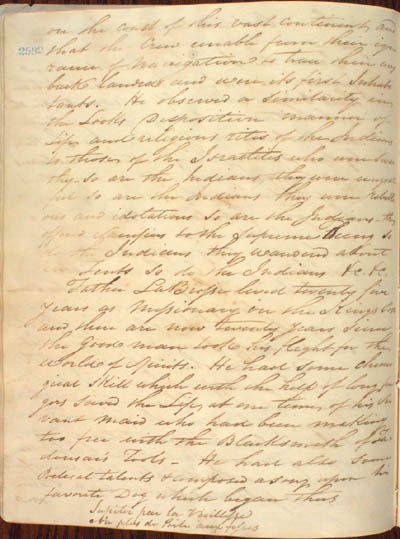 on the coast of this vast continent and
2592
that the Crew unable from their igno
rance of Navagation to trace their way
back landed and were its first Inhabi
tants. He observed a similarity in
the Looks Disposition manner of
life and religious rites of the Indians
to those of the Israelites who were
thy so are the Indians they were
ful so are the Indians they were rebelli
ous and idolatrous so are the Indians they
offered to the Supreme Being so
do the Indians they wandered about
in tents so do the Indians &c &c
Father LaBrosse lived twenty five
years as Missionary in the Kings
and there are now twenty years since
the Good man took his flight for the
World of Spirits. He had some chirur
gical skill which with the help of long fin
gers saved the life at one time of his Ser
vant maid who had been making
too free with the Blacksmith of
Tools – He had also some
Poetical talents & composed a song upon his
favorite Dog which began thus
Jupiter par la
N'a plus de